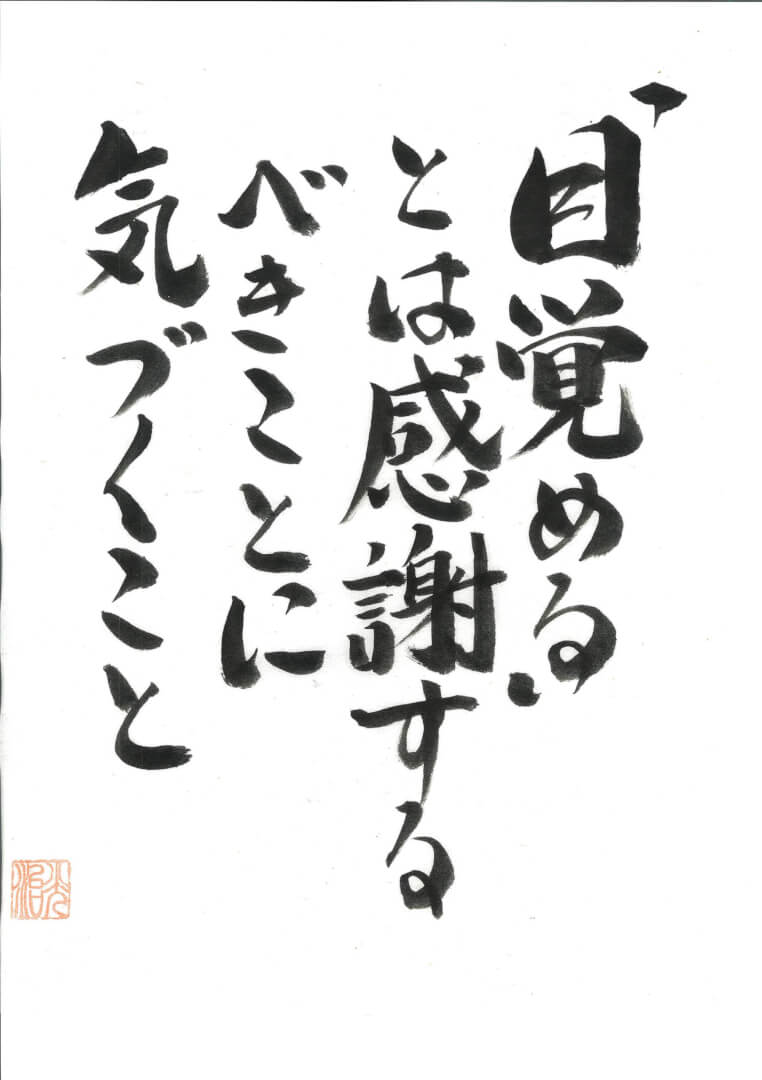 「目覚める」
とは感謝する
べきことに
気づくこと